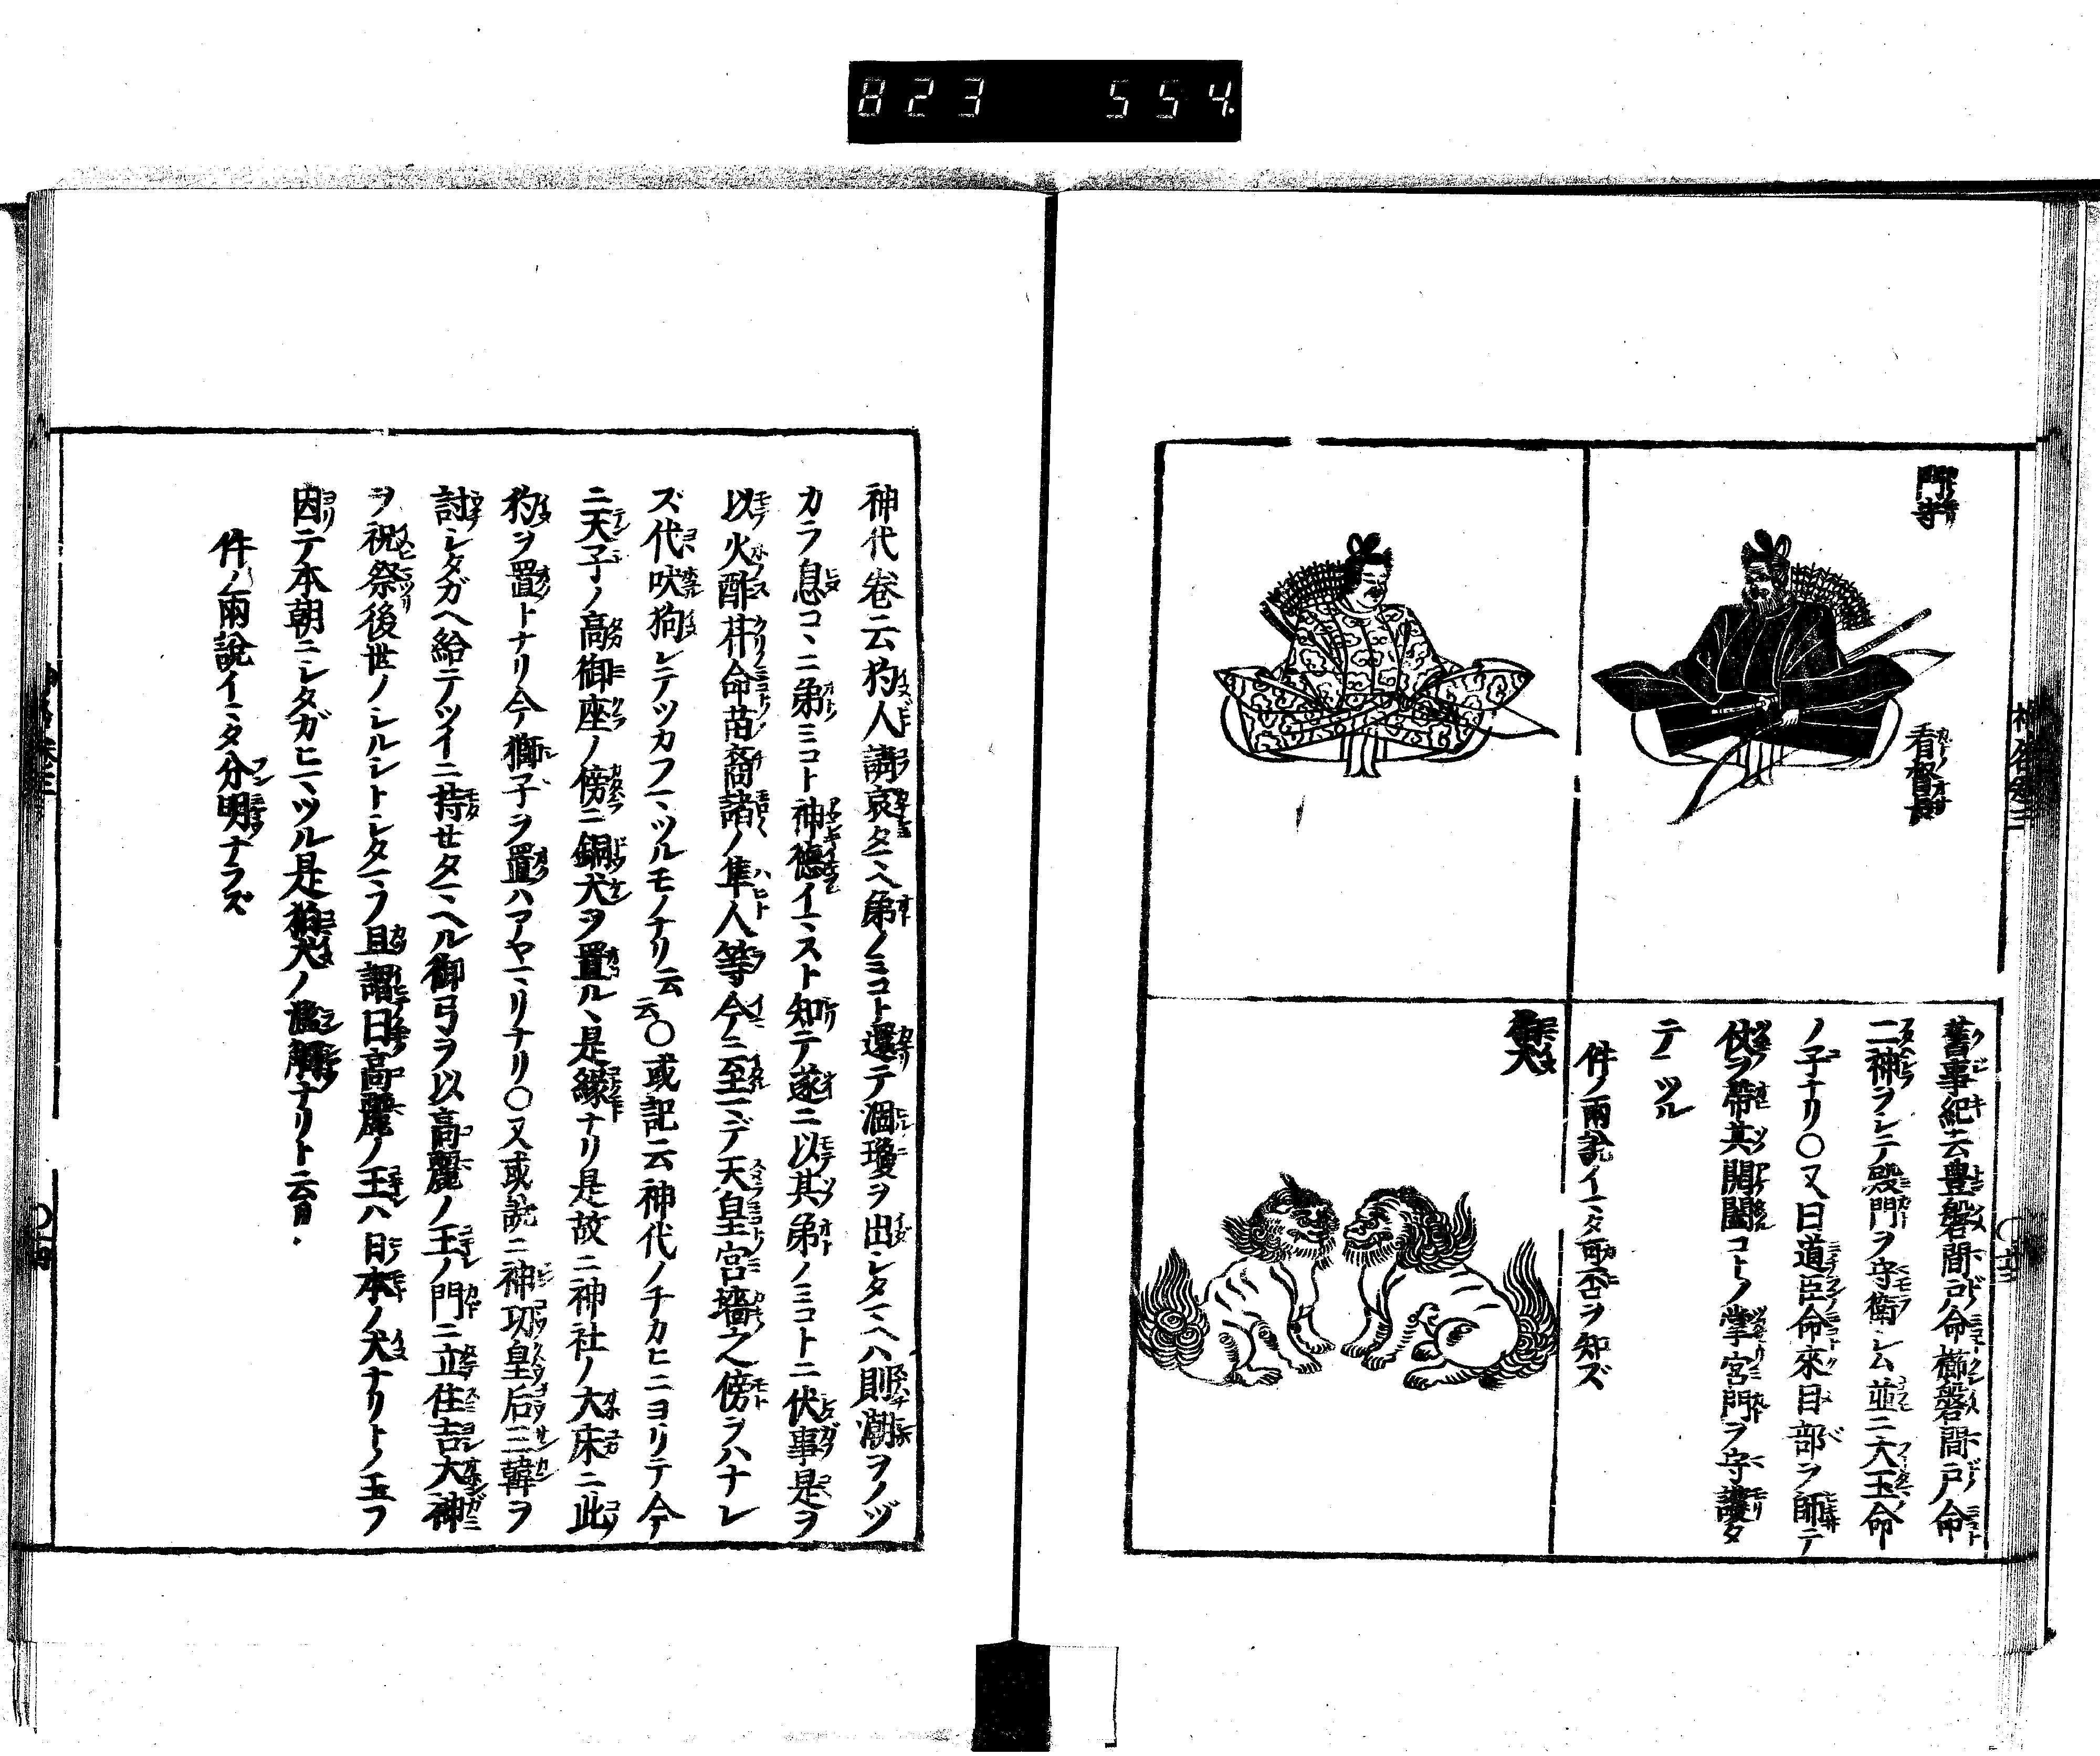 823 554
門守
看督長
舊事紀云豊磐間戸命櫛磐間戸命
二神ヲシテ殿門ヲ守衛シム並ニ太玉命
ノ子ナリ〇又曰道臣命來目部ヲ師テ
仗ヲ帯其開闔コトノ掌宮門ヲ守護タ
テマツル
件ノ兩說イマタ可否ヲ知ズ
犬
神代巻云狗人請哀タマヘ弟ノミコト還テ涸瓊ヲ出シタマヘハ則潮ヲノヅ
カラ息コヽニ弟ミコト神德イマスト知テ遂ニ以其弟ノミコトニ伏事是ヲ
以火酢芹命苗裔諸ノ隼人等今ニ至マデ天皇宮墻之傍ヲハナレ
ズ代吠狗シテツカフマツルモノナリ云云〇或記云神代ノチカヒニヨリテ今
ニ天子ノ高御座ノ傍ニ銅犬ヲ置ルヽ是縁ナリ是故ニ神社ノ大床ニ此
狗ヲ置トナリ今獅子ヲ置ハアヤマリナリ〇又或說ニ神功皇后三韓ヲ
討シタガヘ給テツイニ持せタマヘル御弓ヲ以高麗ノ王ノ門ニ立住吉大神
ヲ祝祭後世ノシルシトシタマフ且謂曰高麗ノ王ハ日本ノ犬ナリトノ玉フ
因テ本朝ニシタガヒマツル是狛犬ノ濫觴ナリト云
件ノ兩說イマタ分明ナラズ